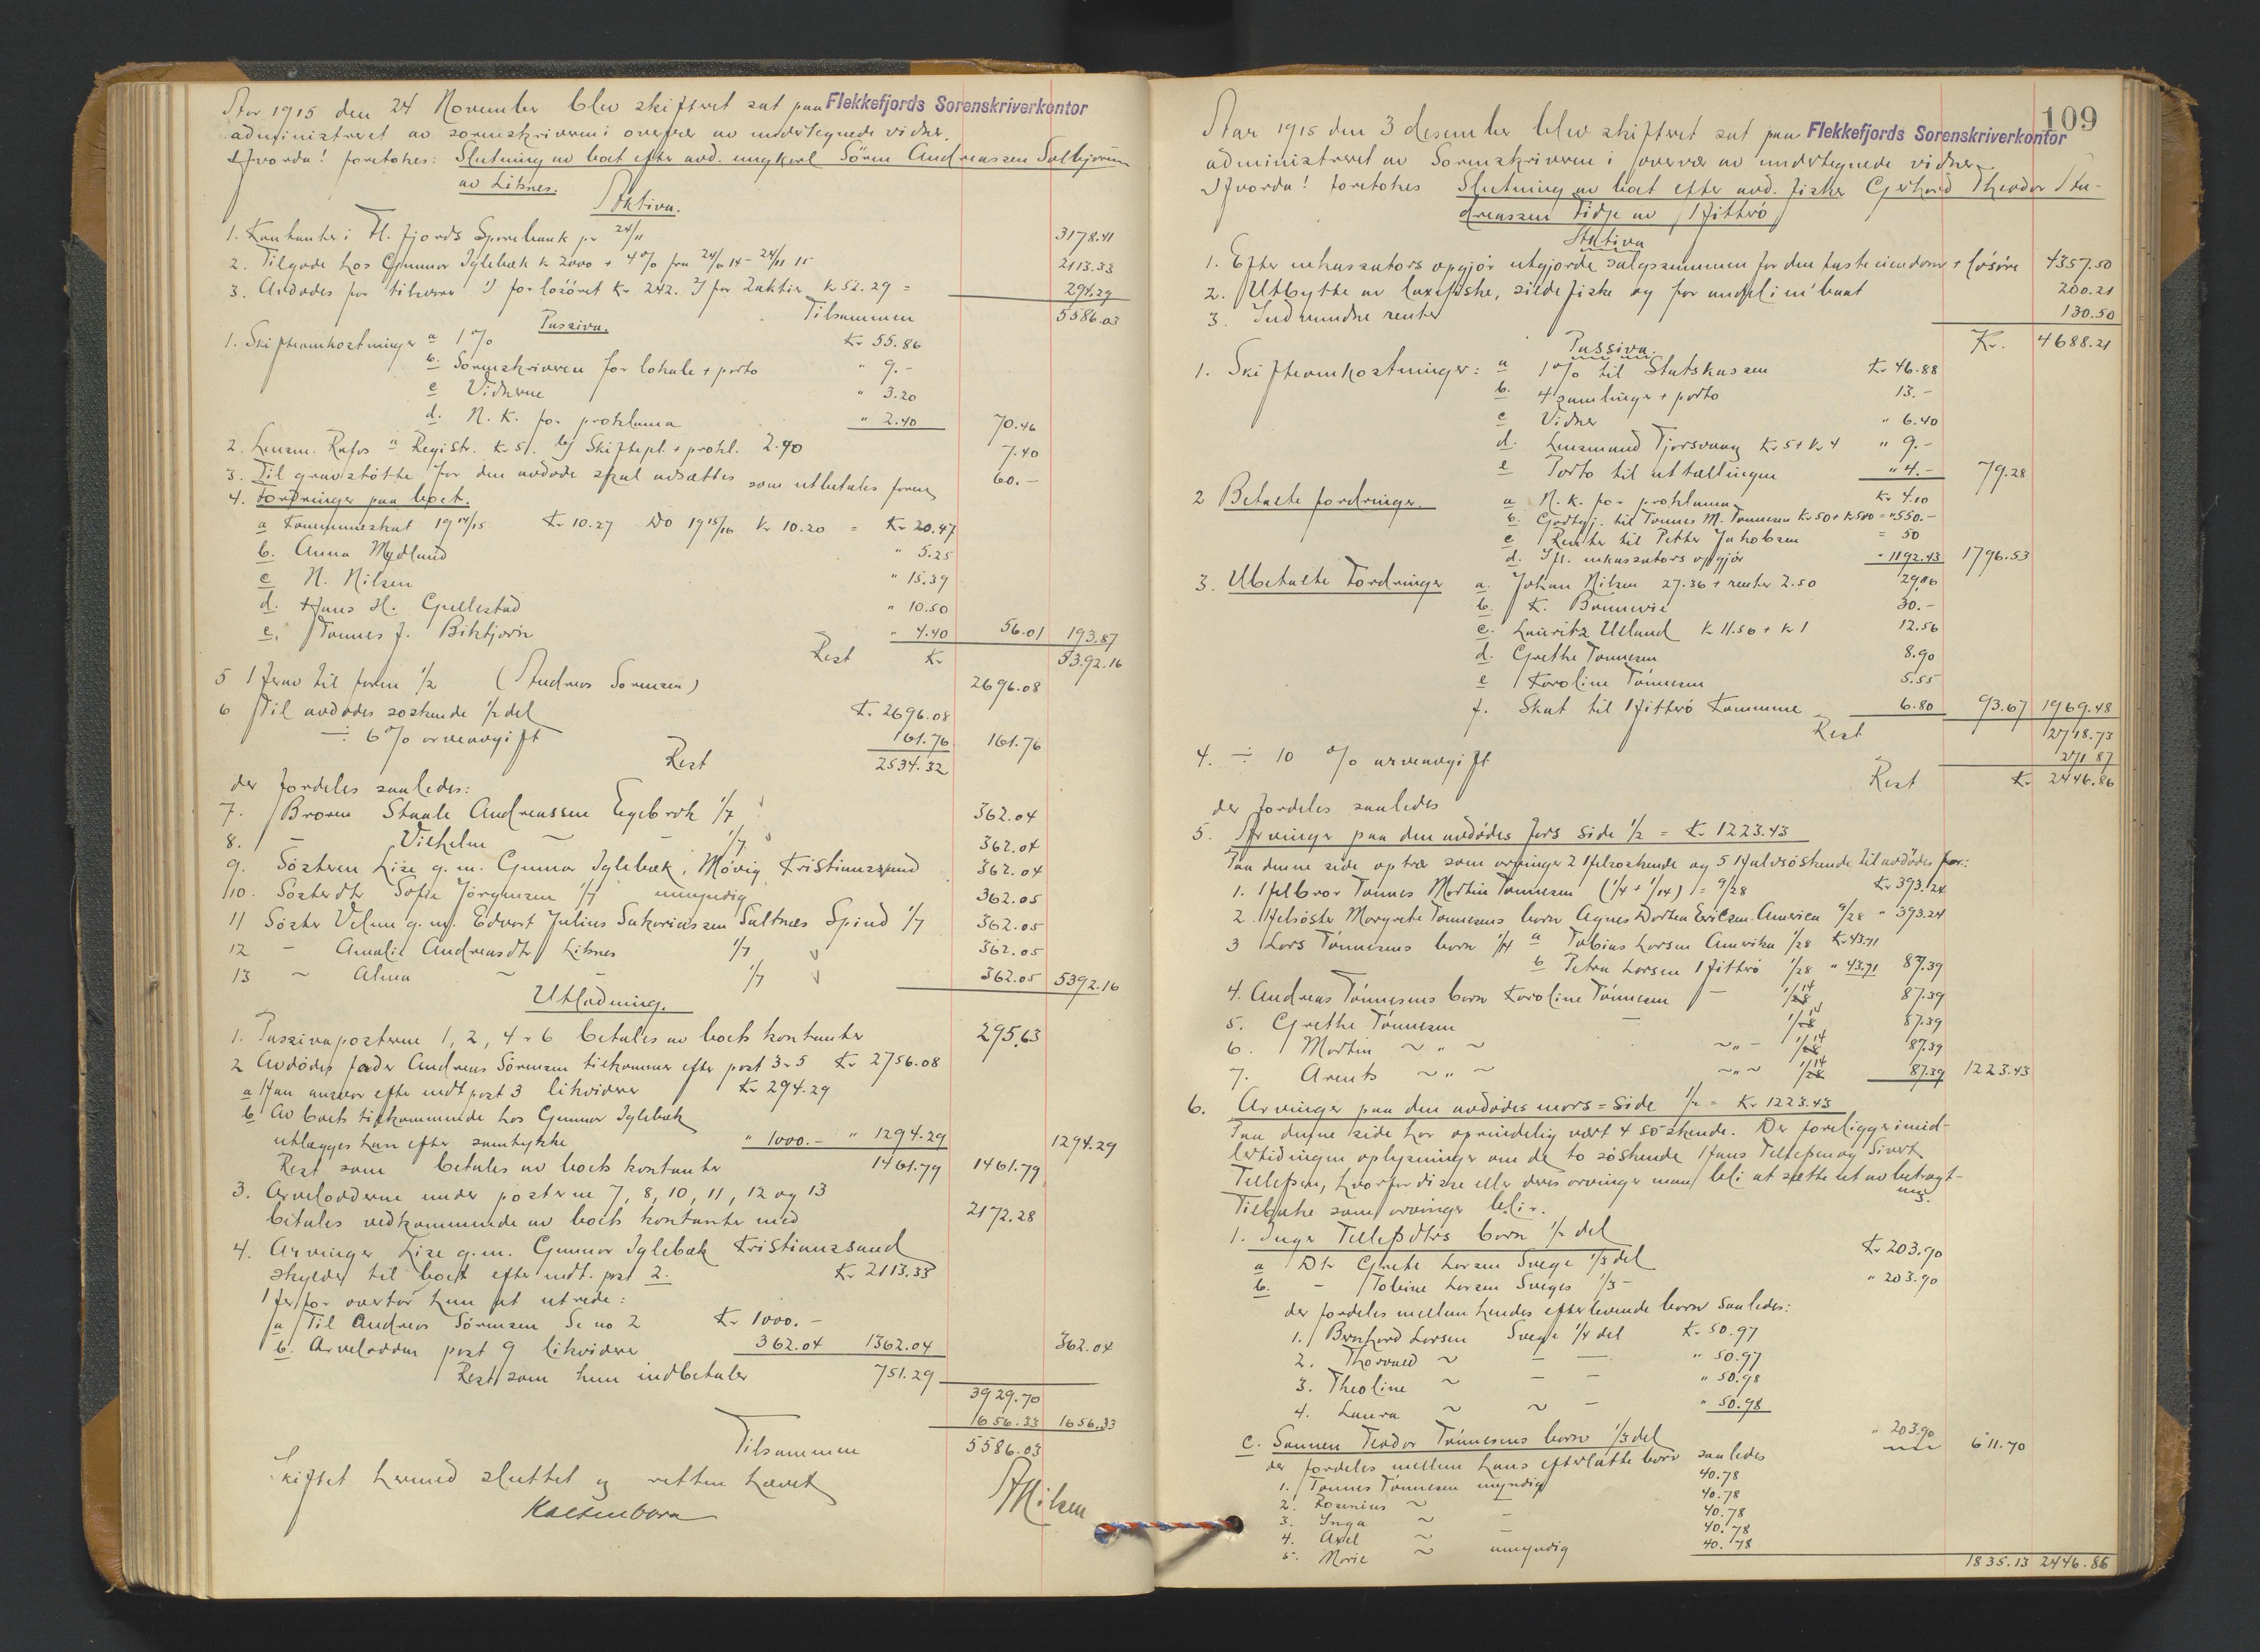 Aar 1915 den 24 November blev skifteret sat paa Flekkefjords Sorenskriverkontor
administreret av sorenskriveren i overvær av undertegnede vidner.
Hvorda! foretokes: Slutning av boet efter avd. ungkarl Sören Andreassen Salbjörum
av Litsnes.
Aktiva.
1. Kontanter i Fl. fjords Sparebank pr 24/11 3178.41
2. Tilgode hos Gunnar Iglebæk k 2000 + 4% fra 24/6 14 - 24/11 15 2113.33
3. Avdødes far tilsvarer 1) for løsöret Kr 242. 2) for 2 aktier k 52.29 = 294.29
Tilsammen 5586.03
Passiva.
1. Skifteomkostninger a 1% Kr 55.86
b. Sorenskriveren for lokale + porto " 9.-
c Vidnerne " 3.20
d. N. K. for proklama " 2.40 70.46
2. Lensm. Rafos a Registr. K 5/. b) Skiftepl. + prokl. 2.40 7.40
3. Til gravstötte for den avdøde skal avsættes som utbetales faren 60.-
4. Fordringer paa boet.
a Kommuneskat 1914/15 Kr 10.27 Do 1915/16 Kr 10.20 = Kr 20.47
b. Anna Mydland " 5.25
c N. Nilsen " 15.39
d. Hans H. Gullestad " 10.50
e. Tønnes J. Birkjorn " 4.40 56.01 193.87
Rest Kr 5392.16
5 Herav til faren 1/2 (Andreas Sørensen) 2696.08
6 Til avdødes søskende 1/2 del Kr 2696.08
÷ 6% arveavgift 161.76 161.76
Rest 2534.32
der fordeles saaledes:
7. Broren Staale Andreassen Egebrok 1/7 362.04
8. — Vilhelm ~ 1/7 362.04
9. Sösteren Lise g. m. Gunnar Iglebæk, Mövig Kristianssand 362.04
10. Sösterdtr Sofie Jörgensen 1/7 umyndig 362.05
11 Söster Velma g. m. Edvart Julius Sakariassen Saltnes Spind 1/7 362.05
12 - Amalie Andreasdtr Litsnes 1/7 362.05
13 ~ Alma ~ - 1/7 362.05 5392.16
Utlodning.
1. Passivaposterne 1, 2, 4 - 6 betales av boets kontanter 295.63
2 Avdödes fader Andreas Sörensen tilkommer efter post 3-5 Kr 2756.08
a Han ansvar efter indt post 3 likviderer Kr 294.29
b Av boets tilkommende hos Gunnar Iglebæk
utlægges han efter samtykke " 1000.- " 1294.29 1294.29
Rest som betales av boets kontanter 1461.79 1461.79
3. Arveloddene under posterne 7, 8, 10, 11, 12 og 13
betales vedkommende av boets kontanter med 2172.28
4. Arvinger Lise g. m. Gunnar Iglebæk Kristianssand
skylder til boet efter indt. post 2. Kr 2113.33
Herfor overtar hun at utrede:
a Til Andreas Sörensen Se no 2 Kr 1000.-
b. Arvelodden post 9 likviderer 362.04 1362.04 362.04
Rest som hun indbetaler 751.29
3929.70
1656.33 1656.33
Tilsammen 5586.03
Skiftet hermed sluttet og retten hævet
Kaltenborn
A Nilsen
109
Aar 1915 den 3 desember blev skifteret sat paa Flekkefjords Sorenskriverkontor
administreret av Sorenskriveren i overvær av undertegnede vidner
Hvorda! foretokes Slutning av boet efter avd. fisker Gerhard Theodor An-
dreassen Tidje av Hitterö
Aktiva
1. Efter inkassators opgjör utgjorde salgssummen for den faste eiendom + lösöre 4357.50
2. Utbytte av laxefiske, sildefiske og for andel i m'baat 200.21
3. Indvundne renter 130.50
Kr. 4688.21
Passiva.
1. Skifteomkostninger: a 1% til Statskassen Kr 46.88
b. 4 samlinger + porto 13.-
c Vidner " 6.40
d. Lensmand Tjorsvaag Kr 5 + Kr 4 " 9.-
e Porto til uttællingen " 4.- 79.28
2 Betalte fordringer. a N. K. for proklama Kr 4.10
b. Godtgj. til Tönnes M. Tönnesen Kr 50 + K 500 = " 550.-
c Renter til Petter Jakobsen = 50
d. Ifl. inkassators opgjör " 1192.43 1796.53
3. Ubetalte Fordringer a. Johan Nilsen 27.36 + renter 2.50 29.86
b. K. Bonnevie 30.-
c. Lauritz Ueland K 11.56 + kr 1 12.56
d. Grethe Tönnesen 8.90
e Karoline Tönnesen 5.55
f. Skat til Hitterö Kommune 6.80 93.67 1969.48
Rest 2718.73
4. ÷ 10 % arveavgift 271.87
Rest Kr 2446.86
der fordeles saaledes
5. Arvinger paa den avdödes fars side 1/2 = Kr 1223.43
Paa denne side optrær som arvinger 2 Helsöskende og 5 Halvsöskende til avdödes far:
1. Helbror Tönnes Martin Tönnesen (1/4 + 1/14) = 9/28 Kr 393.24
2. Helsöster Margrete Tönnesens barn Agnes Dorthea Ericsen. America 9/28 " 393.24
3 Lars Tönnesens born 1/14 a Tobias Larsen Amerika 1/28 Kr 43.71
b Petra Larsen Hitterö 1/28 " 43.71 87.39
4. Andreas Tönnesens born Karoline Tönnesen — 1/14 87.39
5. Grethe Tönnesen — 1/14 87.39
6. Martin ~ " ~ ~ " - 1/14 87.39
7. Arents ~ " ~ ~ " ~ 1/14 87.39 1223.43
6. Arvinger paa den avdödes mors = side 1/2 = Kr 1223.43
Paa denne side har oprindelig vært 4 söskende. Der foreligger imid-
lertid ingen oplysninger om de to söskende Hans Tellefsen og Sivert
Tellefsen, hvorfor disse eller deres arvinger maa bli at sætte ut av betragt-
ning.
Tilbake som arvinger blir.
1. Inger Tellefsdtrs born 1/2 del
a Dtr Grete Larsen Svege 1/3 del Kr 203.90
b. - Tobine Larsen Sveges 1/3 - " 203.90
der fordeles mellem hendes efterlevende born saaledes:
1. Bernhard Larsen Svege 1/4 del Kr 50.97
2. Thorvald ~ — — " 50.97
3. Theoline ~ — — " 50.98
4. Laura ~ ~ — " 50.98
c. Sønnen Teodor Tönnesens born 1/3 del " 203.90 611.70
der fordeles mellem hans efterlatte born saaledes
1. Tönnes Tönnesen myndig 40.78
2. Rasmius ~ — 40.78
3. Inga ~ — 40.78
4. Axel ~ — 40.78
5. Marie ~ umyndig 40.78
1835.13 2446.86